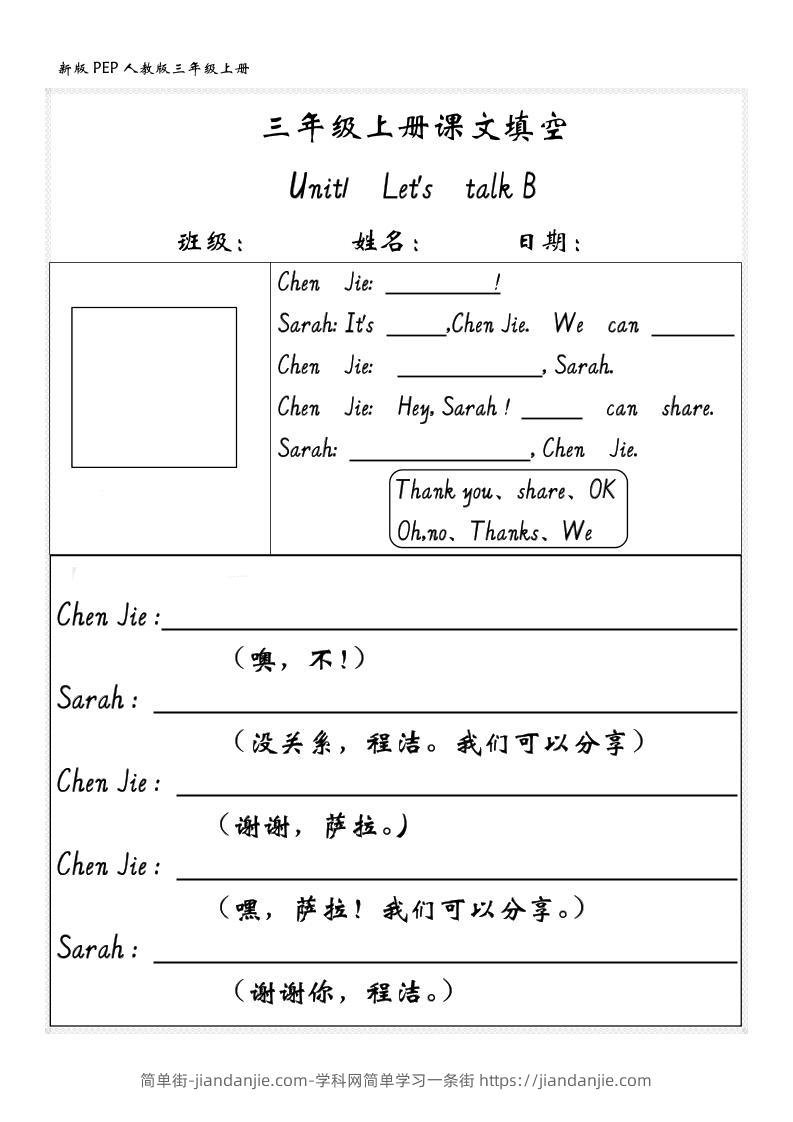 新版 PEP 人教版三年级上册
三年级上册课文填空
Unit1 Let's talk B
班级： 姓名： 日期：
Chen Jie: __________!
Sarah: It's _____,Chen Jie. We can _______
Chen Jie: ____________, Sarah.
Chen Jie: Hey, Sarah ! _____ can share.
Sarah: _______________, Chen Jie.
Thank you、share、OK
Oh,no、Thanks、We
Chen Jie :________________
（噢，不!）
Sarah : ________________
（没关系，程洁。我们可以分享）
Chen Jie : ________________
（谢谢，萨拉。)
Chen Jie : ________________
（嘿，萨拉！我们可以分享。）
Sarah : ________________
（谢谢你，程洁。）
简单街-jiandanjie.com-学科网简单学习一条街 https://jiandanjie.com